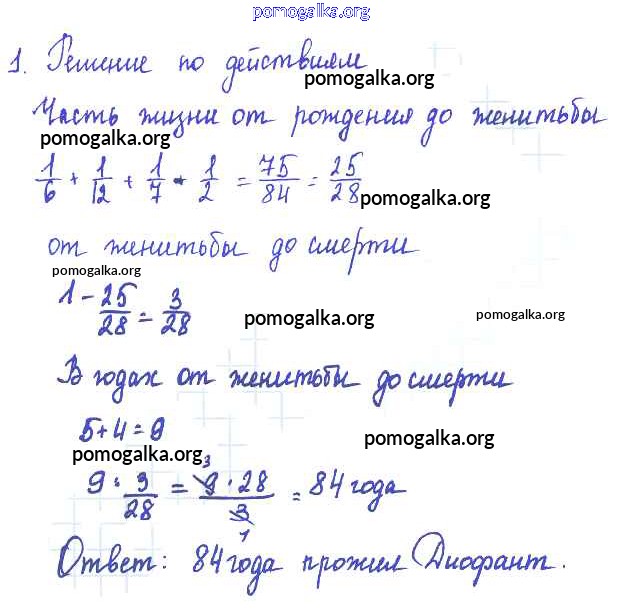 pomogalka.org
1. Решение по действиям
pomogalka.org
Часть жизни от рождения до женитьбы
pomogalka.org
1/6 + 1/12 + 1/7 + 1/2 = 75/84 = 25/28
pomogalka.org
от женитьбы до смерти
pomogalka.org
1 - 25/28 = 3/28
pomogalka.org
pomogalka.org
В годах от женитьбы до смерти
5+4=9
pomogalka.org
pomogalka.org
9 : 3/28 = 9 · 28 / 3 = 84 года
3
1
Ответ: 84 года прожил Диофант.